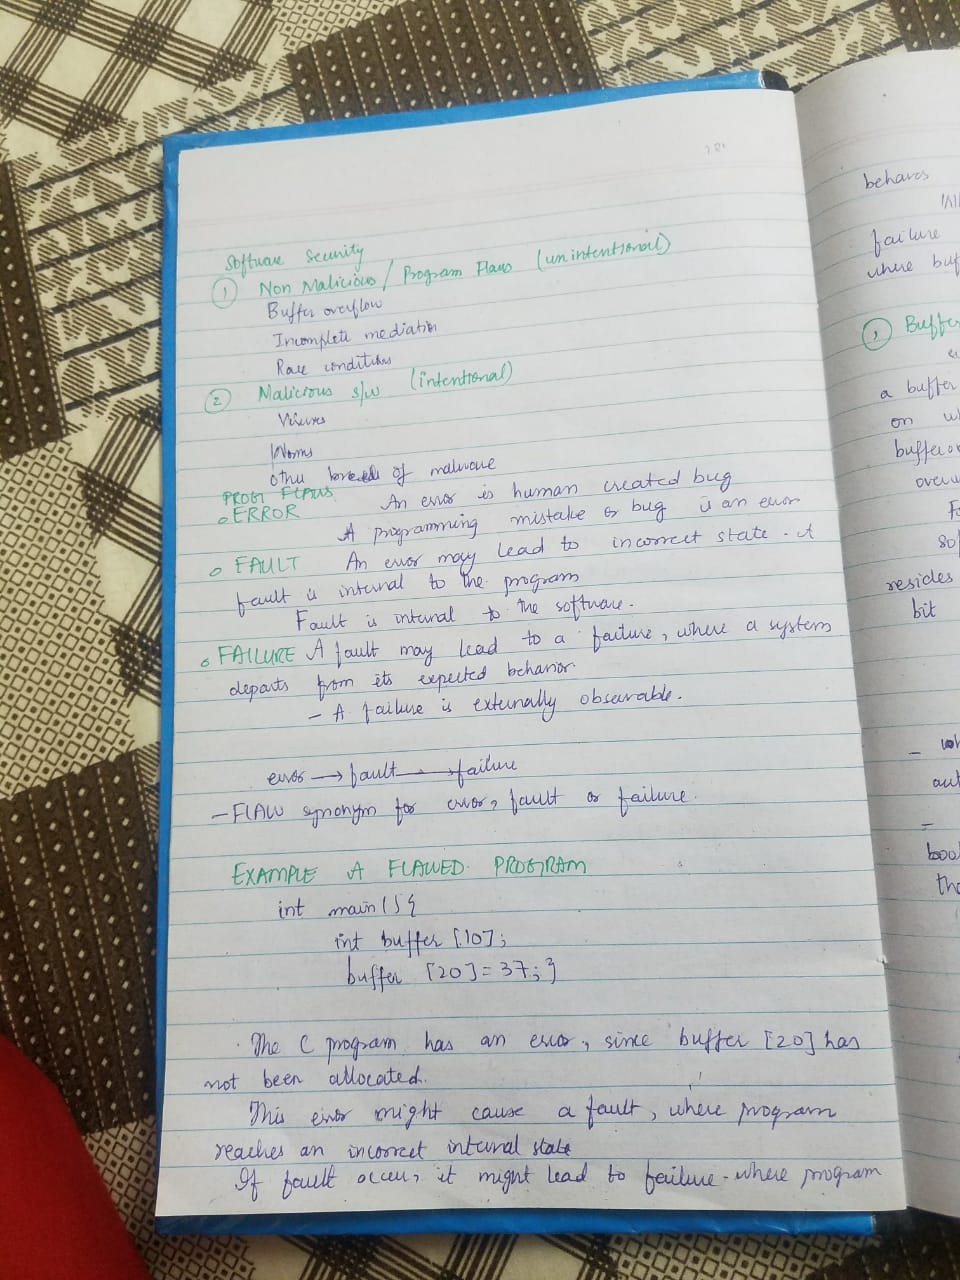 Software Security
1 Non Malicious / Program Flaws (unintentional)
Buffer overflow
Incomplete mediation
Race conditions
2 Malicious s/w (intentional)
Viruses
Worms
other breeds of malware
PROG FLAWS
ERROR An error is human created bug
A programming mistake or bug is an error
FAULT An error may lead to incorrect state. A
fault is internal to the program
Fault is internal to the software.
FAILURE A fault may lead to a failure, where a system
departs from its expected behavior
- A failure is externally observable.
error → fault → failure
- FLAW synonym for error, fault or failure.
EXAMPLE A FLAWED PROGRAM
int main () {
int buffer [10];
buffer [20] = 37; }
The C program has an error, since buffer [20] has
not been allocated.
This error might cause a fault, where program
reaches an incorrect internal state
If fault occur, it might lead to failure - where program
behaves
failure
where buf
1 Buffer
a buffer
on
buffer
resides
bit
aut